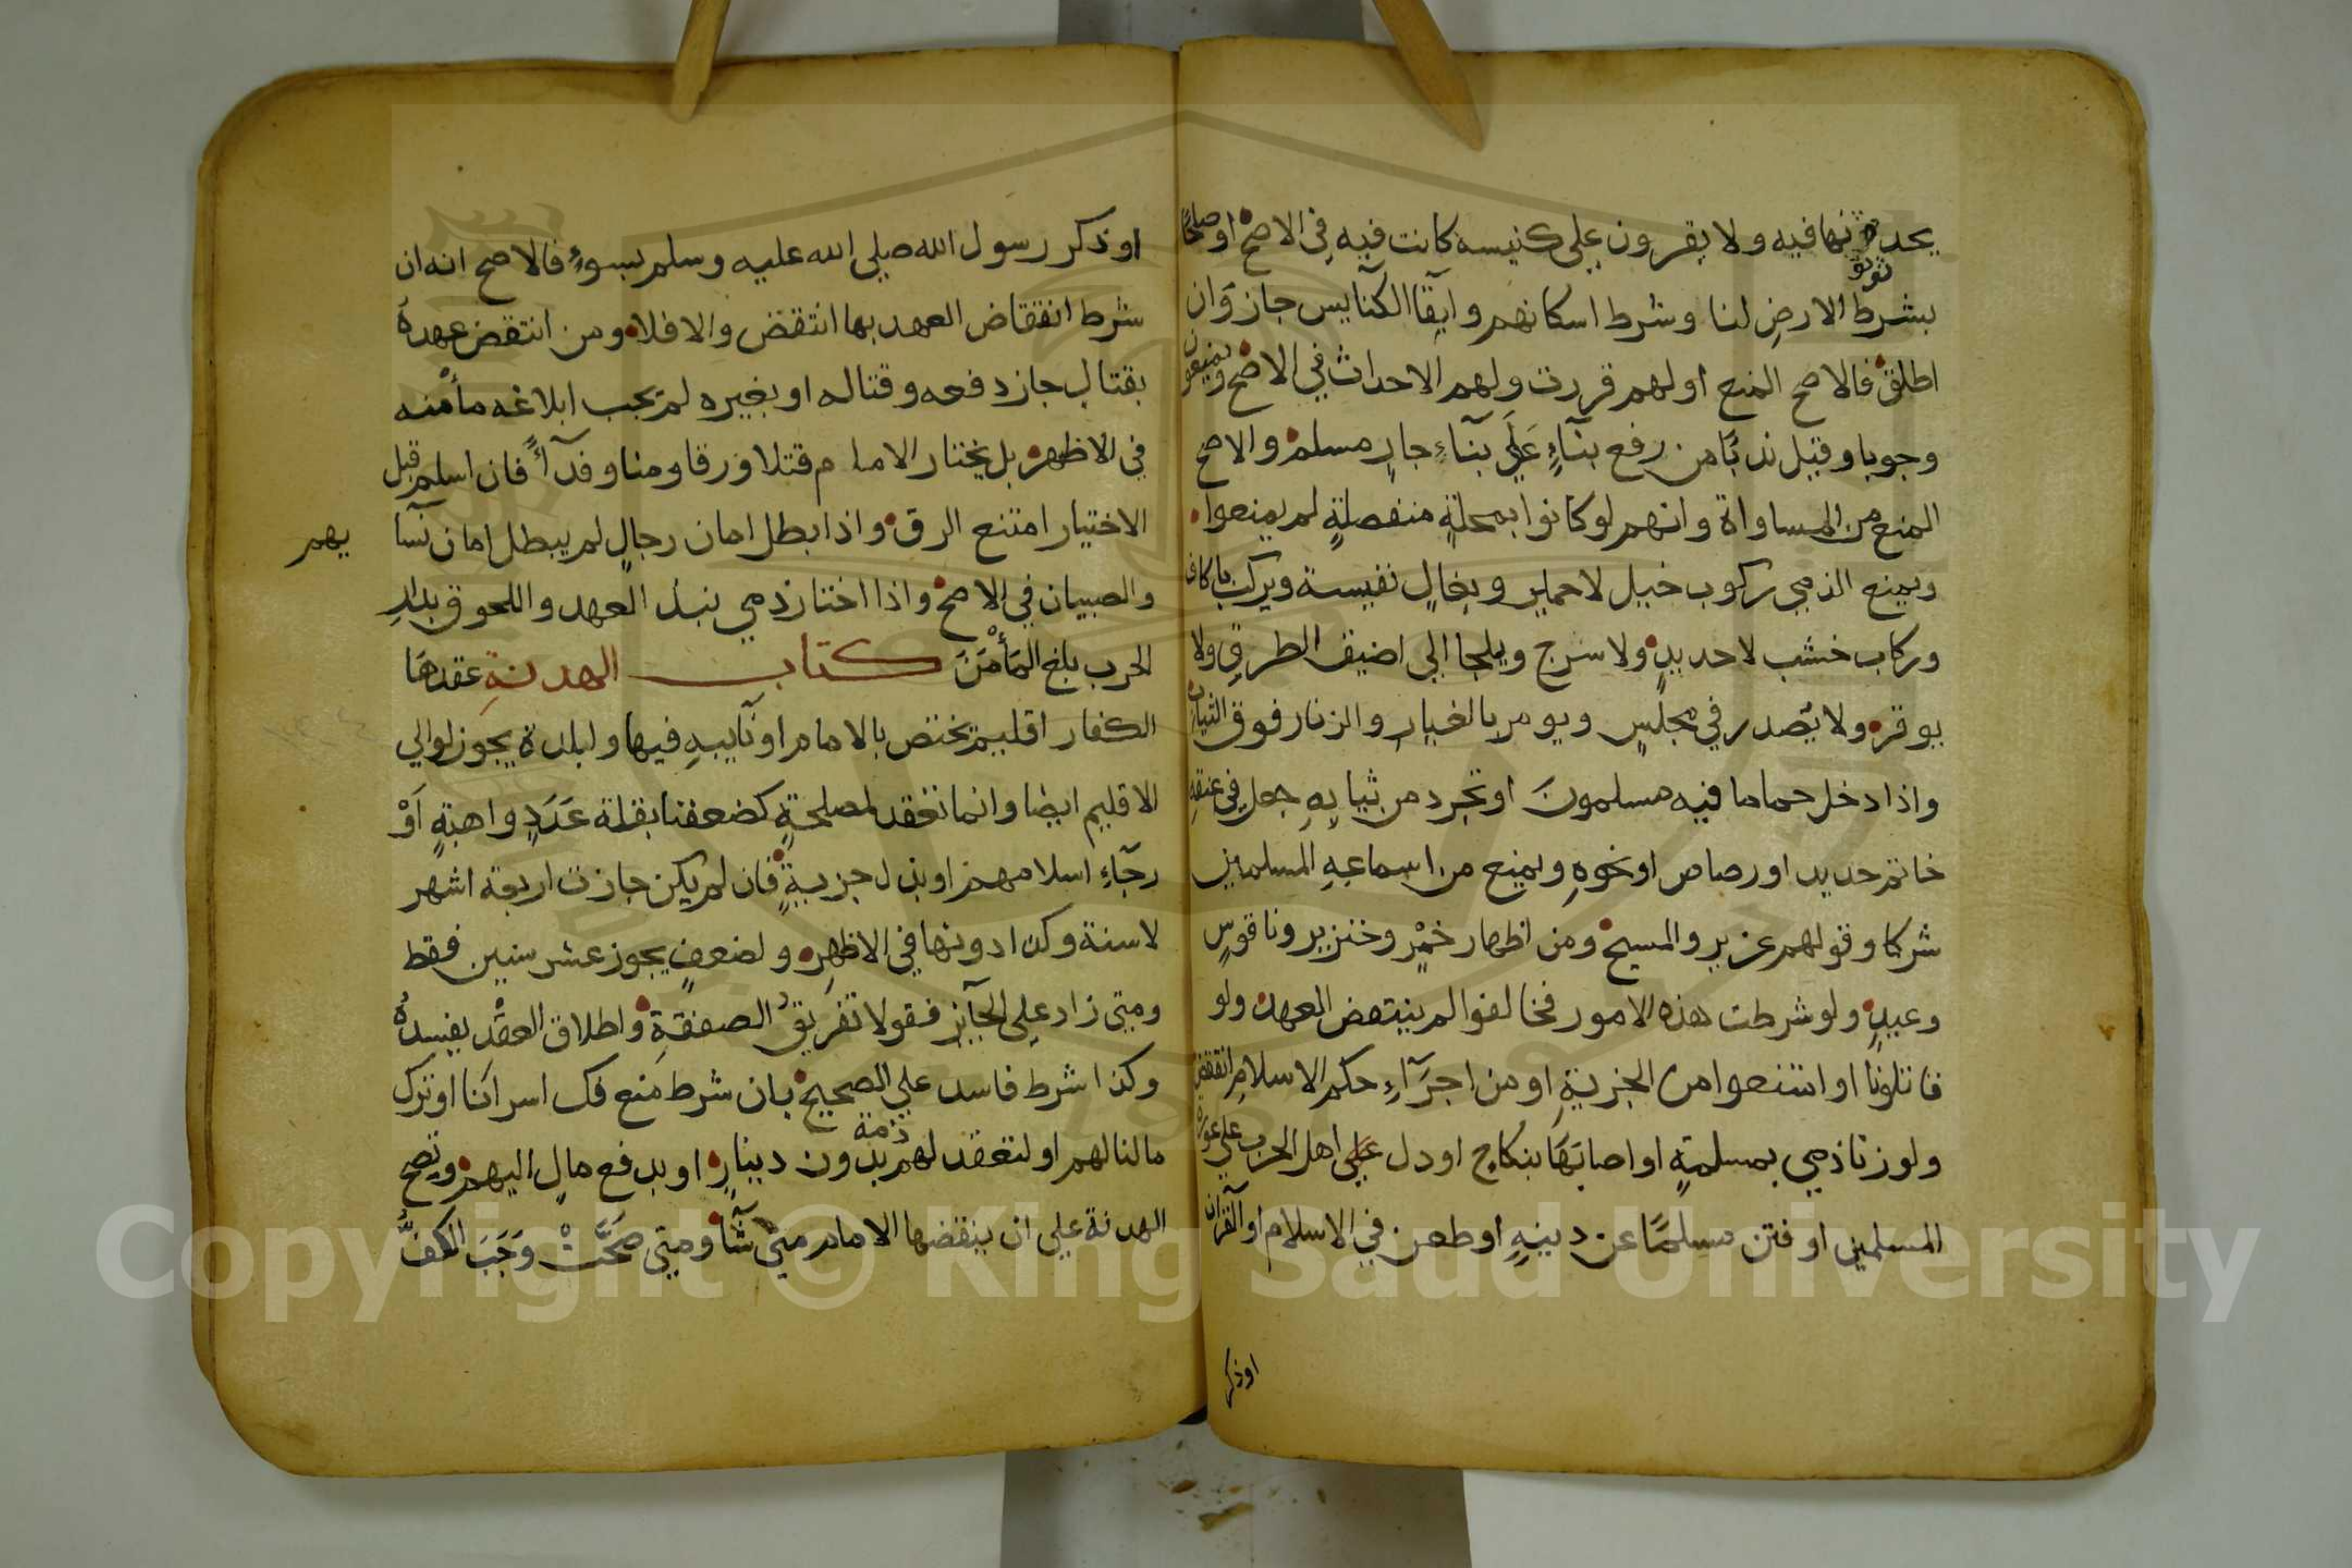 يحد ثونها فيه ولا يقرون علي كنيسه كانت فيه في الاصح او صلحًا
بشرط الارضِ لنا وشرط اسكانهم وابقا الكنآيس جاز وان
اطلق فالاصح المنع او لهم قررت ولهم الاحداث في الاصح ويمنعون
وجوبا وقيل ندبًا من رفع بنآءٍ عَلَي بنآءِ جارٍ مسلم والاصح
المنع من المساواة وانهم لو كانوا بمحلةٍ منفصلةٍ لم يمنعوا
ويمنع الذمي ركوب خيل لا حمير وبغالٍ نفيسة ويركب باكاف
وركاب خشب لا حديدٍ ولا سرج ويلجا الي اضيق الطرقِ ولا
يوقر ولا يصدر في مجلسٍ ويومر بالغيارِ والزنار فوق الثياب
واذا دخل حماما فيه مسلمونَ او تجرد من ثيابِهِ جعل في عنقهِ
خاتم حديد او رصاص او نحوهِ ويمنع من اسماعهِ المسلمين
شركا وقولهم عزير والمسيح ومن اظهار خمْرٍ وخنزير وناقوسٍ
وعيدٍ ولو شرطت هذه الامور فخالفوا لم ينتقض العهد ولو
قاتلونا او امتنعوا من الجزيةِ او من اجرَآءِ حكم الاسلامِ انتقض
ولو زنا ذمي بمسلمةٍ او اصابَهَا بنكاحٍ او دل علي اهل الحرب علي عورة
المسلمين او فتن مسلمًا عن دينهِ او طعن في الاسلام او القرآن
او ذكر
او ذكر رسول الله صلي الله عليه وسلم بسوءٍ فالاصح انه ان
شرط انتقاض العهد بها انتقض والا فلا ومن انتقض عهدهُ
بقتالٍ جاز دفعه وقتاله او بغيره لم يجب ابلاغه مأمنه
في الاظهر بل يختار الامام قتلا ورقا ومنا وفدآءً فان اسلم قبل
الاختيار امتنع الرق واذا بطل امان رجالٍ لم يبطل امان نسآ
يهم
والصبيان في الاصح واذا اختار ذمي نبذ العهد واللحوق بدارِ
الحرب بلغ المَأْمَنَ كتاب الهدنةِ عقدهَا
الكفار اقليم تختص بالامام او نآيبهِ فيها ولبلدة يجوز لوالي
الاقليم ايضا وانما تعقد لمصلحةٍ كضعفنا بقلة عَدَدٍ واهبةٍ اَوْ
رجآءِ اسلامهم او بذل جزيةٍ فان لم يكن جازت اربعة اشهر
لا سنة وكذا دونها في الاظهرِ ولضعفٍ يجوز عشر سنين فقط
ومتي زاد علي الجآيز فقولا تفريقُ الصفقةِ واطلاق العقْد يفسدهُ
وكذا شرط فاسد علي الصحيح بان شرط منع فك اسرانا او ترك
مالنا لهم او لتعقد لهم ذمة بدون دينارٍ او بدفع مالٍ اليهم وتصح
الهدنة علي ان ينقضها الامام متي شآ ومتي صَحَّتْ وَجَبَ الكفُّ
Copyright © King Saud University